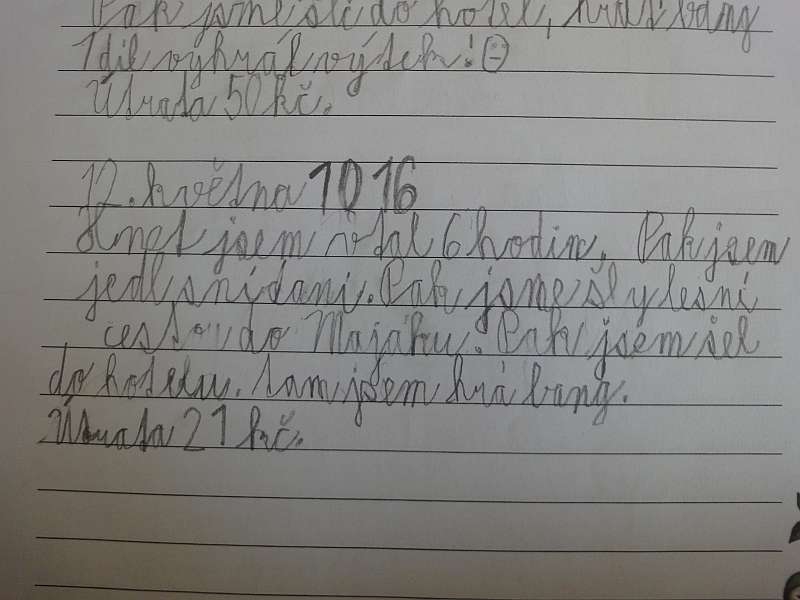 Pak jsme šli do hotel, hráli bang
1 díl vyhrál výtek! ☺
Útrata 50 kč.
12. května 1016
Hnet jsem vstal 6 hodin. Pak jsem
jedl snídani. Pak jsme šly lesní
cestou do Majáku. Pak jsem šel
do hotelu. tam jsem hrá bang.
Útrata 21 kč.